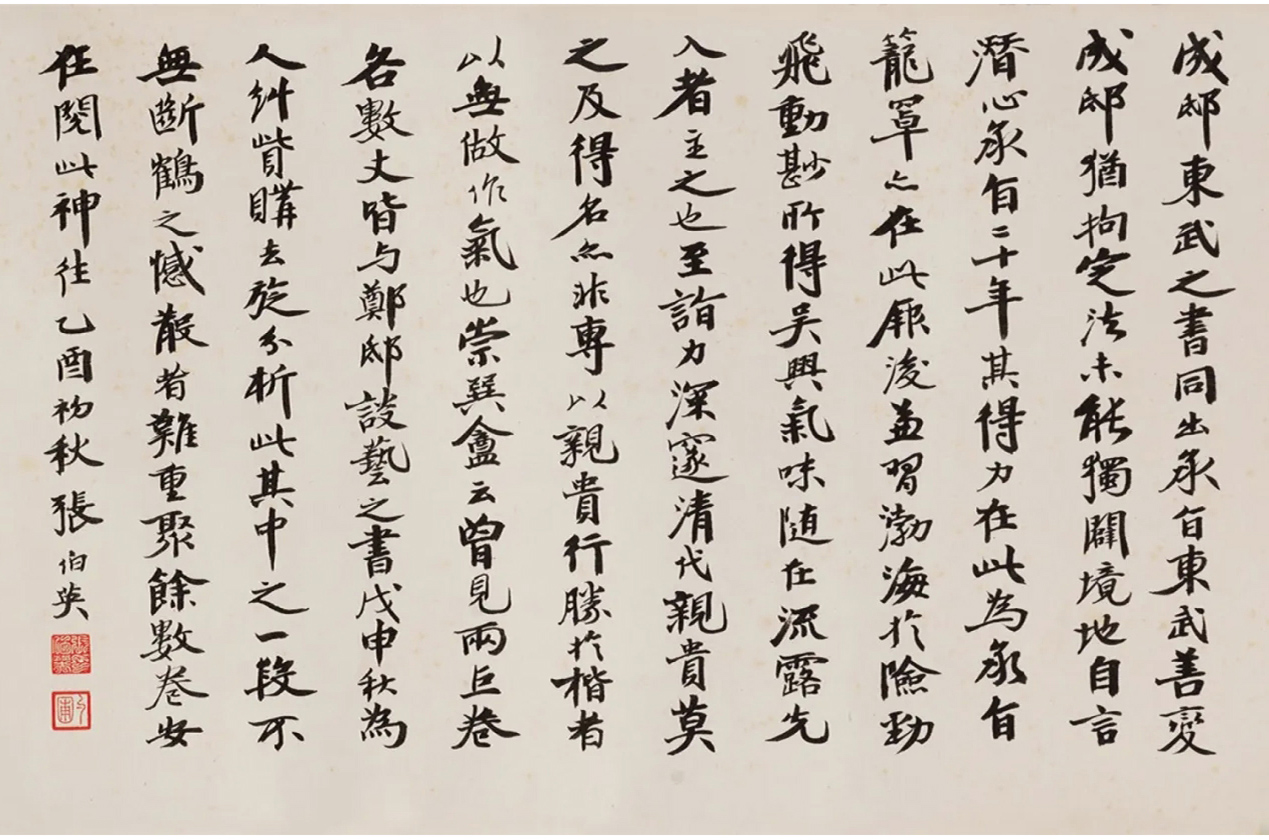 成邸東武之書同出永旨東武善變
成邸猶拘定法未能獨闢境地自言
潛心永旨二十年其得力在此為永旨
籠罩亦在此厥後兼習渤海於險勁
飛動尠所得吳興氣味隨在流露先
入者主之也至詣力深邃清代親貴莫
之及得名亦非專以親貴行勝於楷者
以無做作氣也崇巽盦云曾見兩巨卷
各數丈皆与鄭邸談藝之書戊申秋為
人糾貲購去旋分析此其中之一段不
無斷鶴之憾散者難重聚餘數卷安
在閱此神往乙酉初秋張伯英